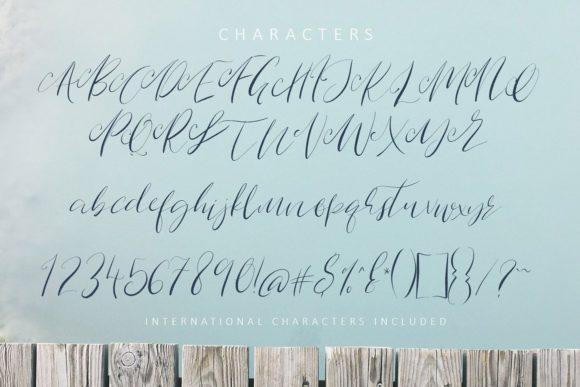 CHARACTERS
ABCDEFGHIJKLMNO
PQRSTUVWXYZ
abcdefghijklmnopqrstuvwxyz
1234567890!@#$%^&*()[]{}/?~
INTERNATIONAL CHARACTERS INCLUDED